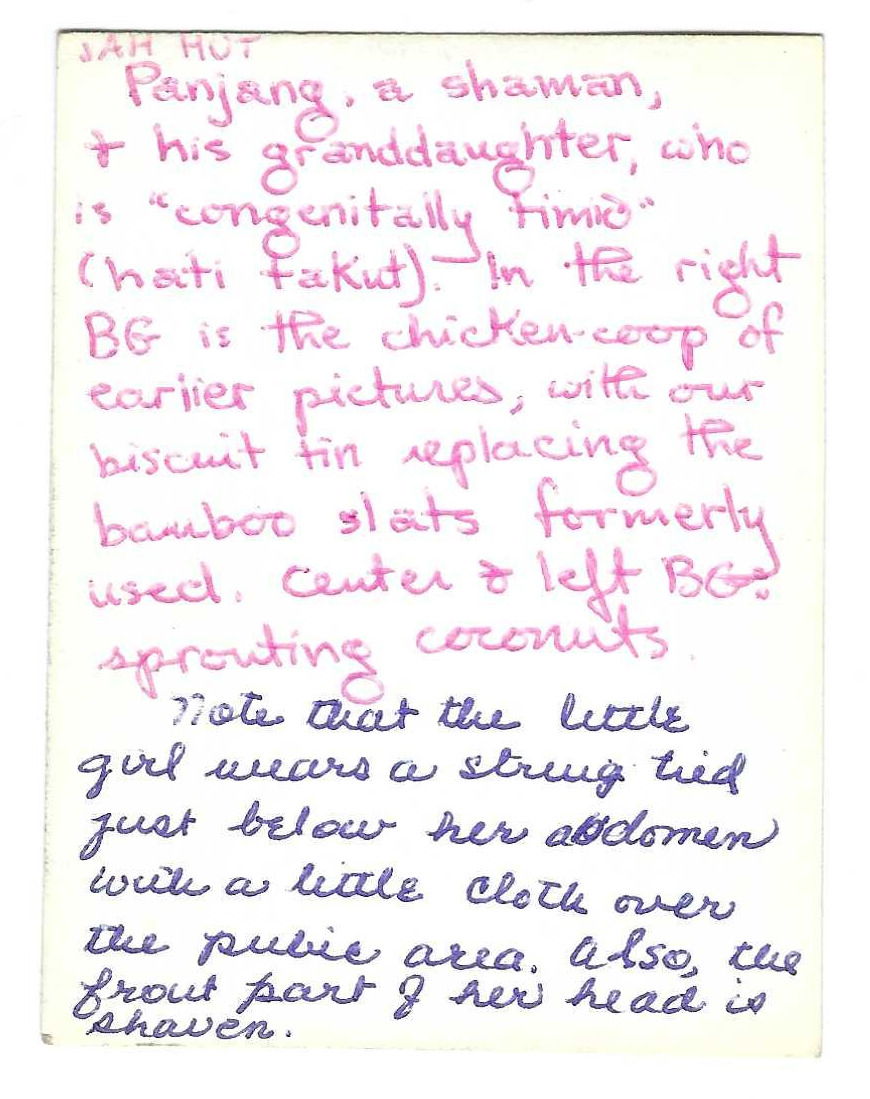 JAH HUT
Panjang, a shaman,
+ his granddaughter, who
is "congenitally timid"
(hati takut). In the right
BG is the chicken-coop of
earlier pictures, with our
biscuit tin replacing the
bamboo slats formerly
used. Center & left BG:
sprouting coconuts.
Note that the little
girl wears a string tied
just below her abdomen
with a little cloth over
the pubic area. Also, the
front part of her head is
shaven.